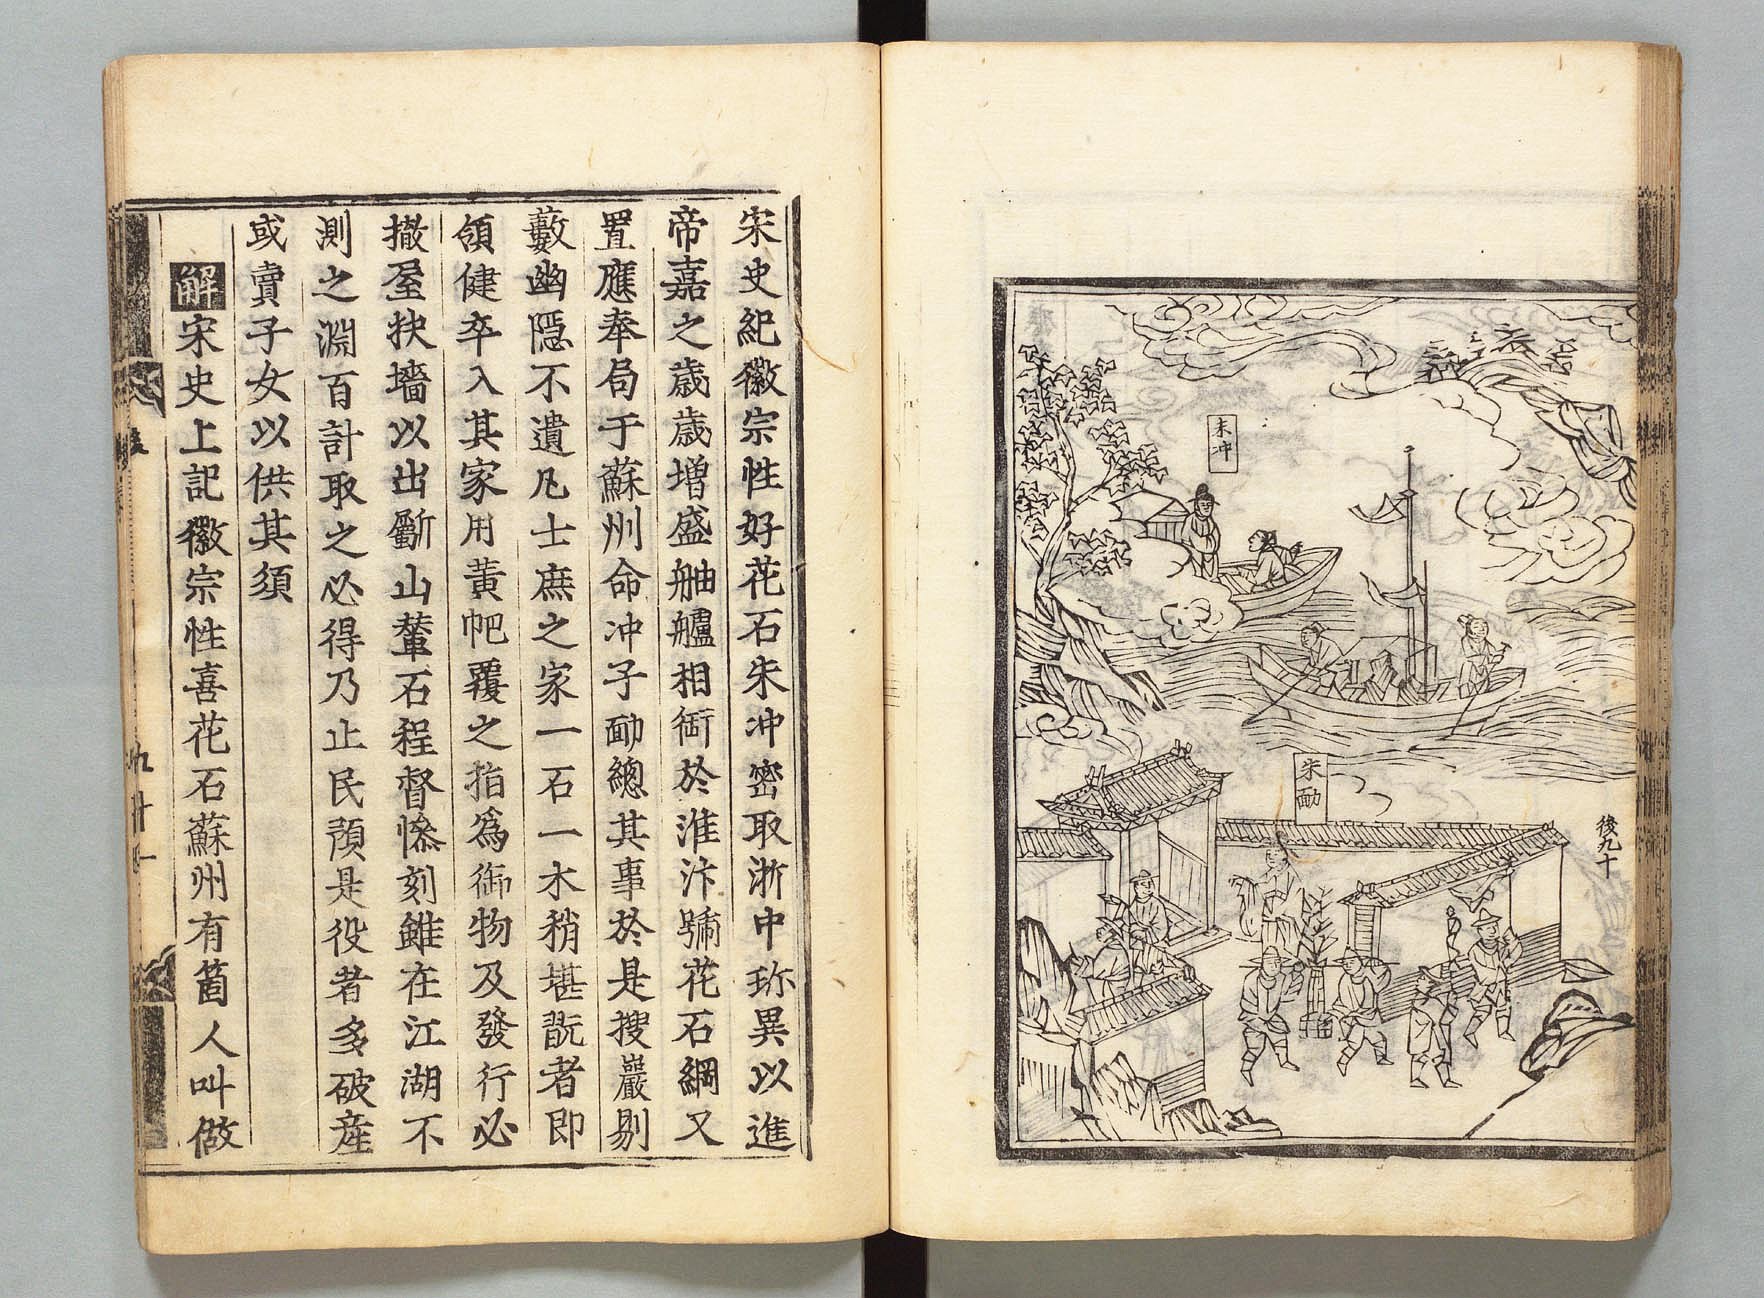 朱冲
朱勔
後九十
宋史紀徽宗性好花石朱冲密取浙中珎異以進
帝嘉之歳歳增盛舳艫相銜於淮汴號花石綱又
置應奉局于蘇州命冲子勔總其事於是搜巖剔
藪幽隱不遺凡士庶之家一石一木稍堪翫者即
領健卒入其家用黄帊覆之指爲御物及發行必
撤屋抉墻以出斸山輦石程督慘刻雖在江湖不
測之淵百計取之必得乃止民預是役者多破産
或賣子女以供其須
解宋史上記徽宗性喜花石蘇州有箇人叫做